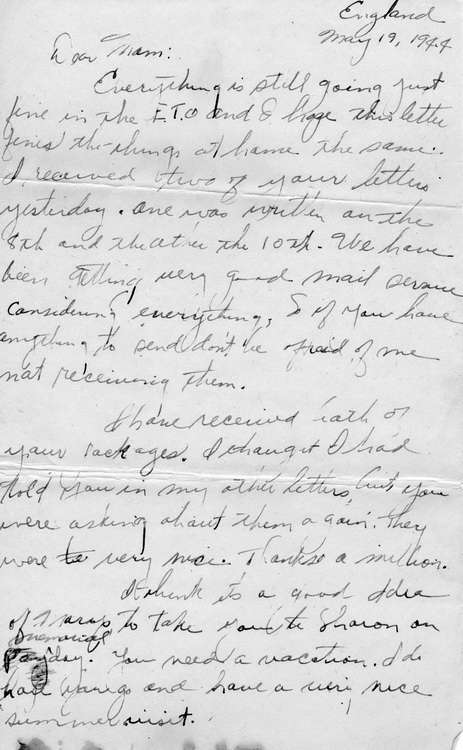 England
May 19, 1944
Dear Mom:
Everything is still going just
fine in the E.T.O and I hope this letter
fines the things at home the same.
I received two of your letters
yesterday. one was written on the
8th and the other the 10th. We have
been getting very good mail service
considering everything, So if you have
anything to send don't be afraid of me
not receiving them.
I have received both of
your packages. I thought I had
told you in my other letters, but you
were asking about them again. They
were very nice. Thanks a million.
I think it's a good idea
of to take you to Sharon on
memorial
day. You need a vacation. I do
hope you go and have a very nice
summer visit.